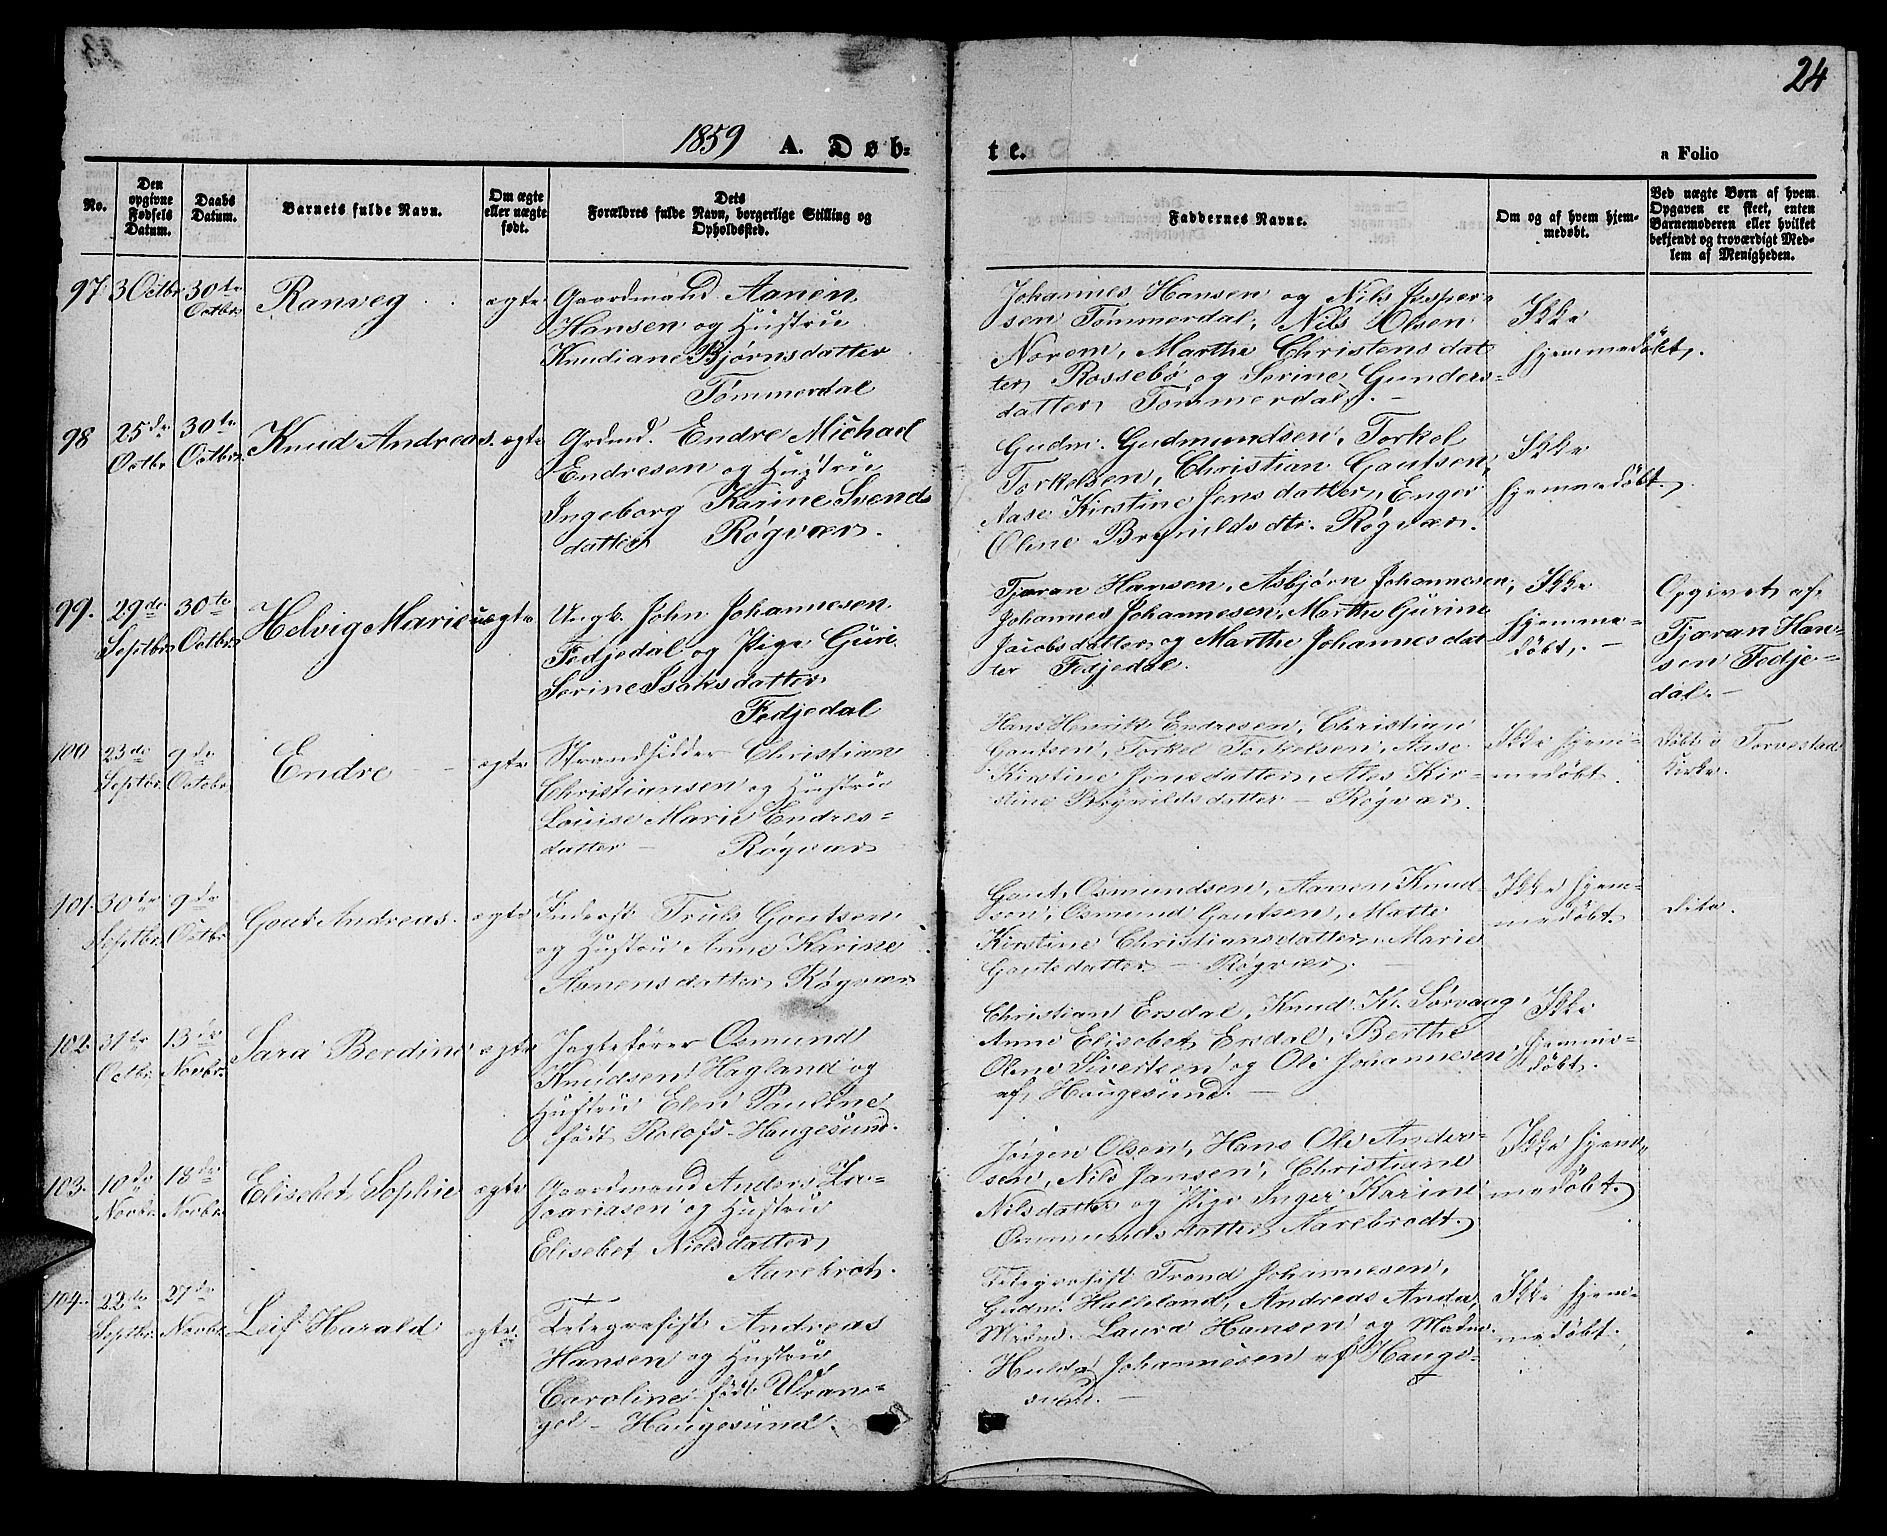 24
1859 A. Døb-
te.
a Folio
No.
Den
opgivne
Fødsels
Datum.
Daabs
Datum.
Barnets fulde Navn.
Om ægte
eller uægte
født.
Dets
Forældres fulde Navn, borgerlige Stilling og
Opholdssted.
Faddernes Navne.
Om og af hvem hjem-
medøbt.
Ved uægte Børn af hvem
Opgaven er skeet, enten
Barnemoderen eller hvilket
bekjendt og troværdigt Med-
lem af Menigheden.
97 3 Octbr 30te
Octbr
Ranveg
ægte
Gaardmand Aanen
Hansen og Hustru
Knudiane Bjørnsdatter
Tømmerdal
Johannes Hansen og Nils Jesper-
sen Tømmerdal, Nils Olsen
Norem, Marthe Christensdat
ter Rossebø og Serine Gunders-
datter Tømmerdal. -
Ikke
hjemmedøbt.
98 25de
Octbr
30te
Octbr.
Knud Andreas.
ægte
Grdmd. Endre Michael
Endresen og Hustru
Ingeborg Karine Svends
datter Røgvær.
Gudm. Gudmundsen, Torkel
Torkelsen, Christian Gautsen,
Aase Kirstine Jensdatter, Enger
Oline Brynildsdtr. Røgvær.
Ikke
hjemmedøbt.
99. 29de
Septbr
30te
Octbr
Helvig Marie
uægte
Ungk. John Johannesen
Fedjedal og Pige Guri
Serine Isaksdatter
Fedjedal
Tjøran Hansen, Asbjørn Johannesen,
Johannes Johannesen, Marthe Gurine
Jacobsdatter og Marthe Johannesdat
ter Fedjedal.
Ikke
hjemme-
døbt. -
Opgivet af
Tjøran Han-
sen Fedje-
dal. -
100 23de
Septbr.
9de
Octobr
Endre
ægte
Strandsidder Christian
Christiansen og Hustru
Louise Marie Endres-
datter - Røgvær
Hans Henrik Endresen, Christian
Gautsen, Torkel Torkelsen, Aase
Kirstine Jensdatter, Ales Kir-
stine Brynildsdatter - Røgvær.
Ikke hjem-
medøbt.
Døbt i Torvestad
Kirke.
101. 30te
Septbr
9de
Octbr.
Gout Andreas.
ægte
Inderst Truls Goutsen
og Hustru Anne Karine
Aanensdatter Røgvær
Gout Osmundsen, Aanen Knud-
sen, Osmund Goutsen, Matte
Kirstine Christiansdatter, Marie
Goutedatter - Røgvær. -
Ikke hjem-
medøbt.
Dito.
102. 31te
Octbr
13de
Novbr.
Sara Berdine
ægte
Jagtefører Osmund
Knudsen Hagland og
Hustru Elen Pauline
født Rolofs - Haugesund.
Christian Ersdal, Knud Kl. Sørvaag,
Anne Elisebet Ersdal, Berthe
Oline Sivertsen og Ole Johannesen
af Haugesund. -
Ikke
hjemme-
døbt.
103. 10de
Novbr.
18de
Novbr.
Elisebet Sophie
ægte
Gaardmand Anders Za-
cariasen og Hustru
Elisebet Nielsdatter
Aarebrot.
Jørgen Olsen, Hans Ole Ander-
sen, Nils Jansen, Christiane
Nilsdatter og Pige Inger Karine
Osmundsdatter Aarebrodt.
Ikke hjem-
medøbt.
104. 22de
Septbr.
27de
Novbr.
Leif Harald
ægte
Telegrafist Andreas
Hansen og Hustru
Caroline født Wran-
gel - Haugesund.
Telegrafist Trond Johannesen,
Gudm. Halleland, Andreas Anda,
Mdm. Laura Hansen og Mdm.
Hulda Johannesen af Hauge-
sund. -
Ikke hjem-
medøbt.